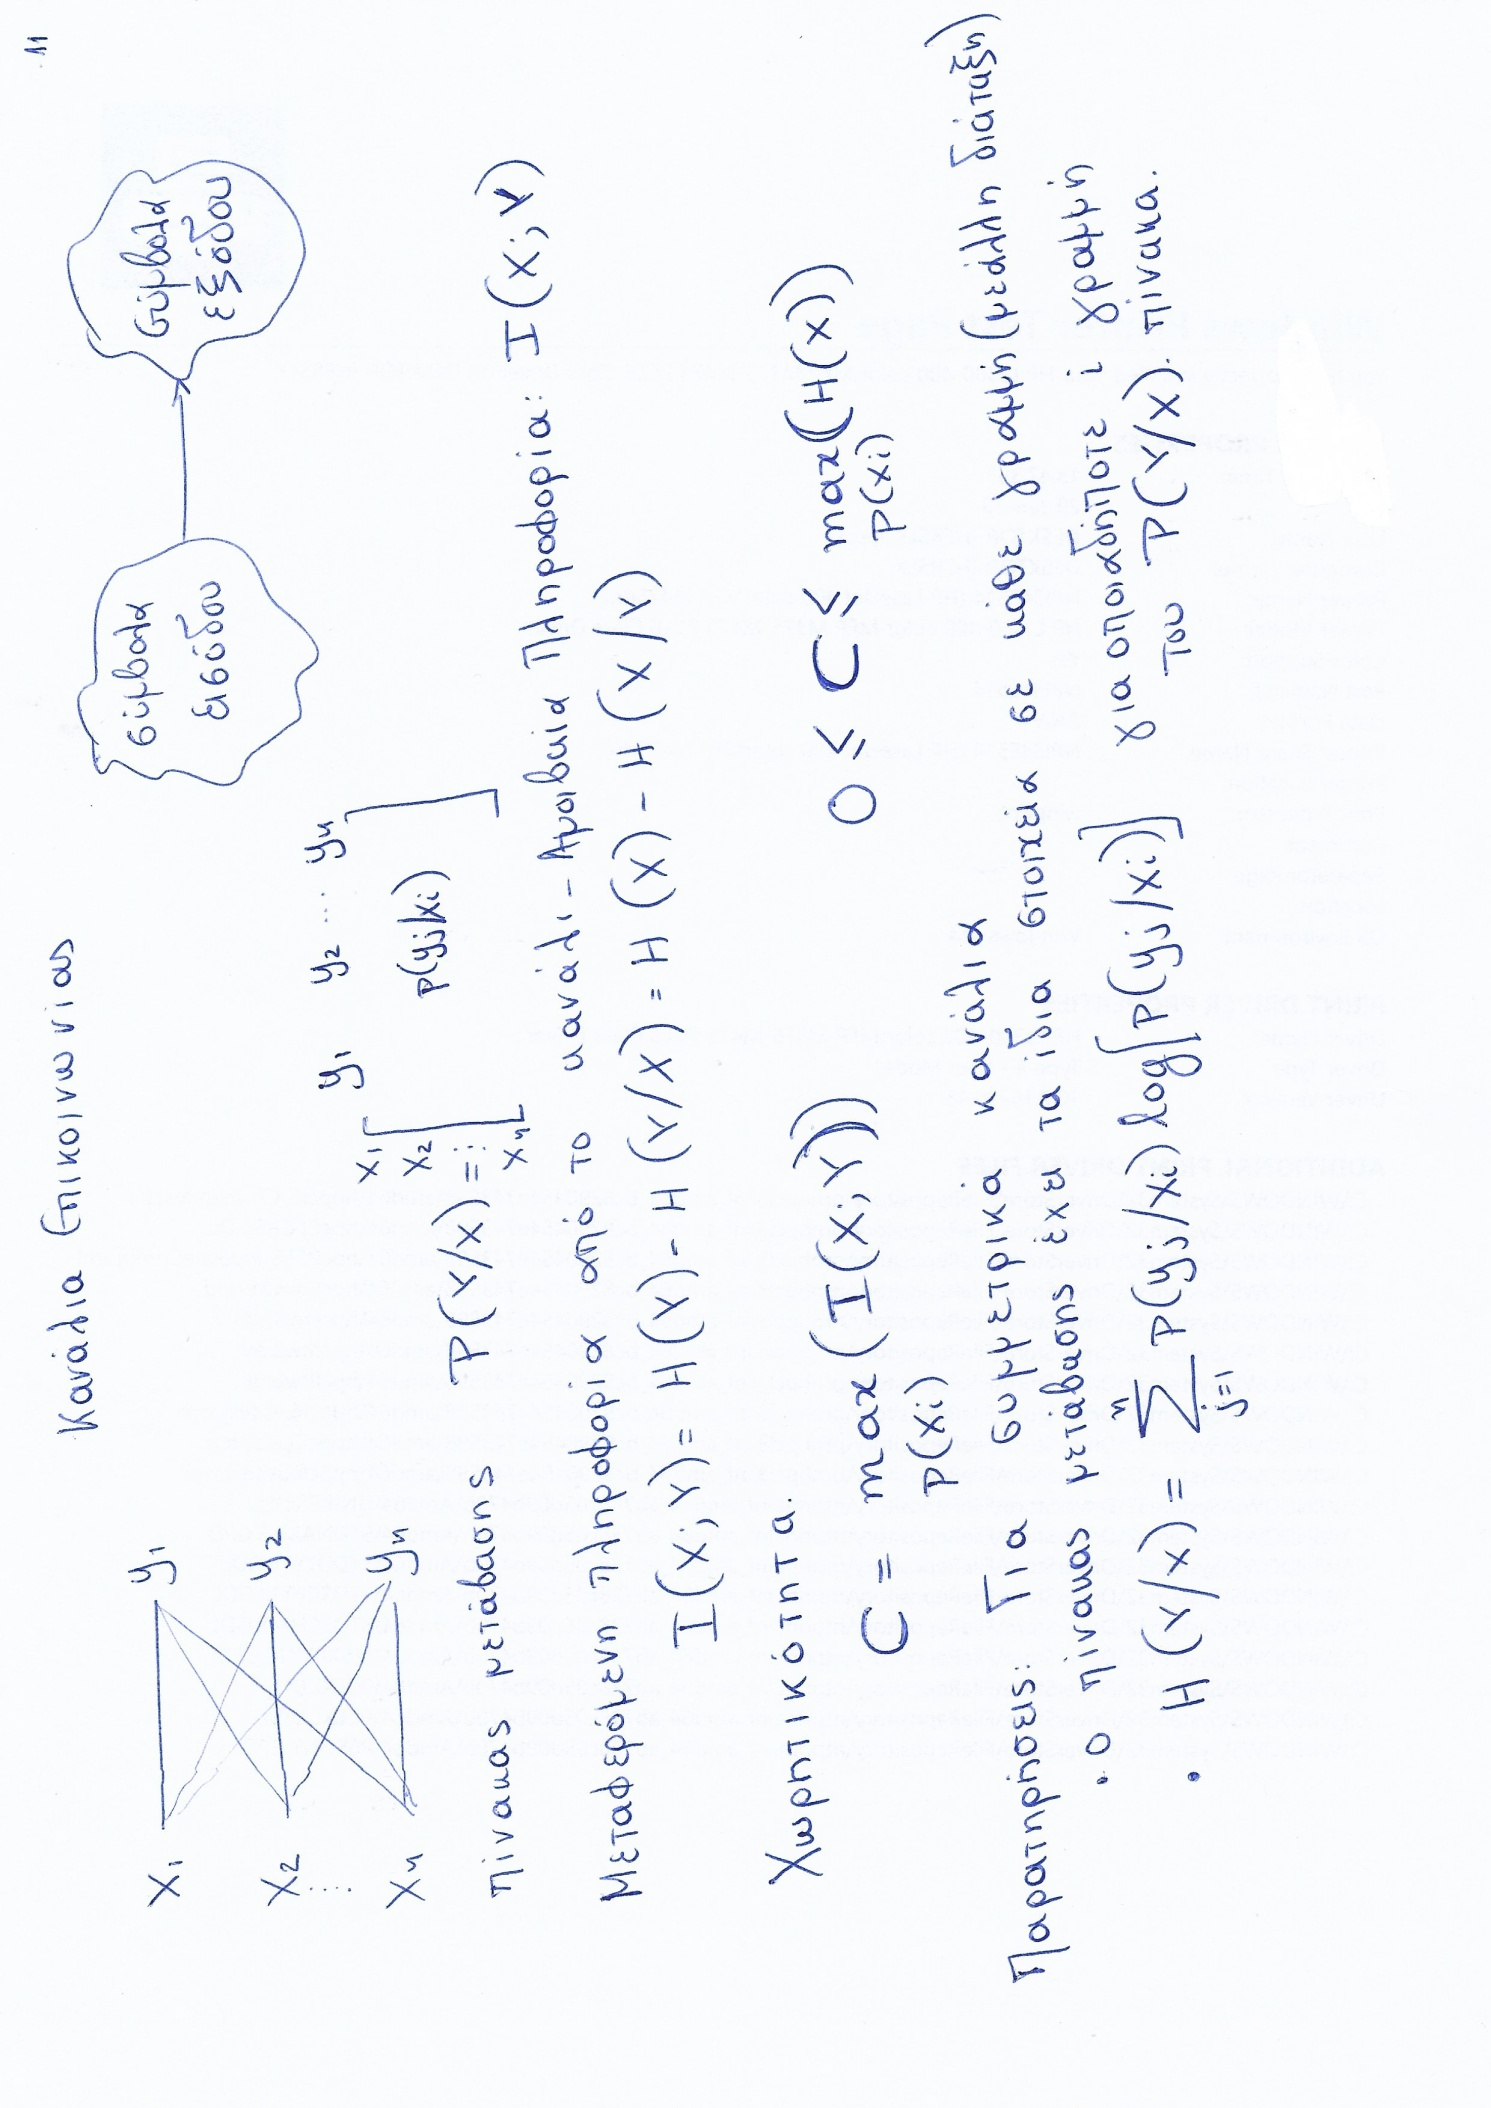 11
Κανάλια Επικοινωνίας
x1 y1
x2 y2
.....
xn yn
σύμβολα εισόδου
σύμβολα εξόδου
y1 y2 .... yn
x1
x2
⋮
xn
πίνακας μετάβασης P(Y/X) = [ p(yj/xi) ]
Μεταφερόμενη πληροφορία από το κανάλι - Αμοιβαία Πληροφορία: I(X;Y)
I(X;Y) = H(Y) - H(Y/X) = H(X) - H(X/Y)
Χωρητικότητα:
C = max (I(X;Y)) 0 ≤ C ≤ max((H(X))
p(xi) p(xi)
Παρατηρήσεις: Για συμμετρικά κανάλια
• Ο πίνακας μετάβασης έχει τα ίδια στοιχεία σε κάθε γραμμή (με άλλη διάταξη)
• H(Y/X) = Σ P(yj/xi) log[P(yj/xi)] για οποιαδήποτε i γραμμή
n
j=1
του P(Y/X). πίνακα.